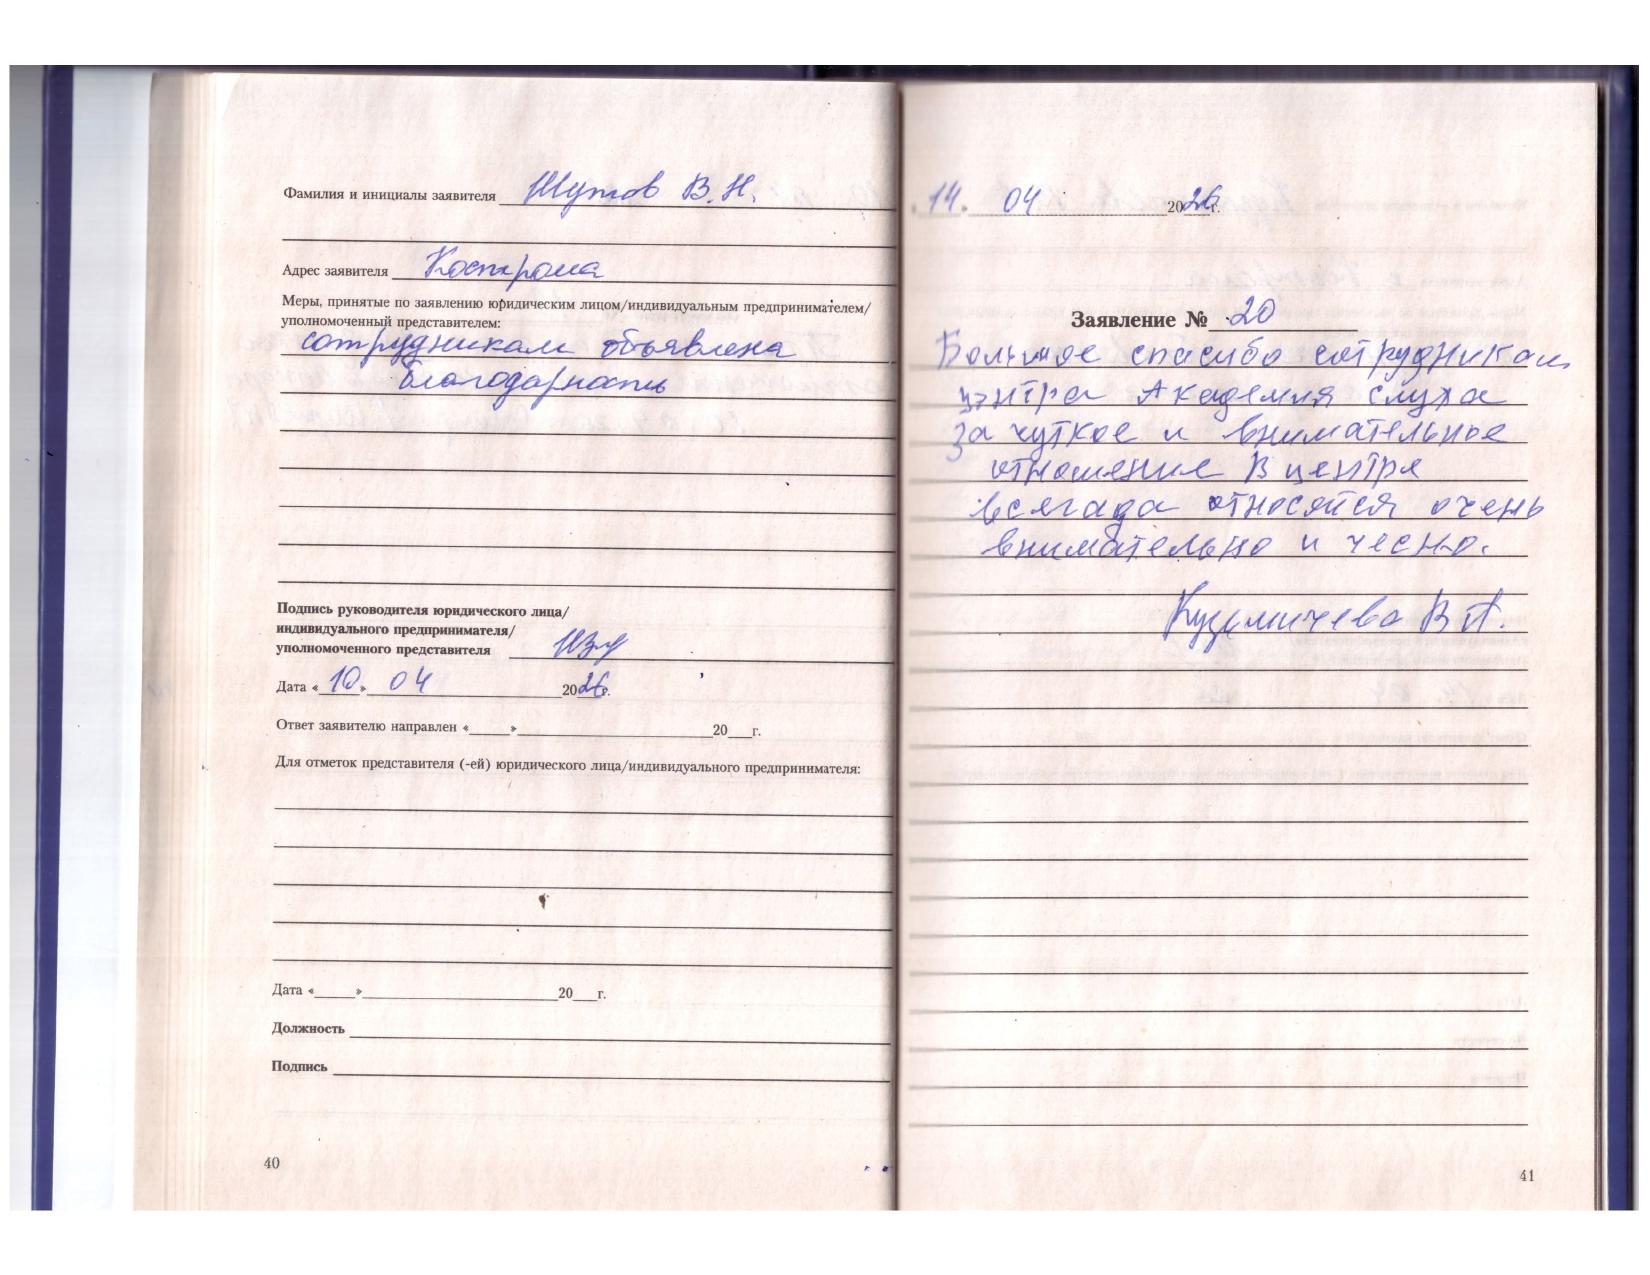 Фамилия и инициалы заявителя Шутов В.Н.
Адрес заявителя Кострома
Меры, принятые по заявлению юридическим лицом/индивидуальным предпринимателем/
уполномоченный представителем:
сотрудникам объявлена
благодарность
Подпись руководителя юридического лица/
индивидуального предпринимателя/
уполномоченного представителя
Дата «10.» 04 2026г.
Ответ заявителю направлен «____»____20__г.
Для отметок представителя (-ей) юридического лица/индивидуального предпринимателя:
Дата «____»____20__г.
Должность
Подпись
40
14. 04 2026г.
Заявление № 20
Большое спасибо сотрудникам
центра Академия слуха
За чуткое и внимательное
отношение В центре
всегада относятся очень
внимательно и чесно.
Кузьмичева В П.
41